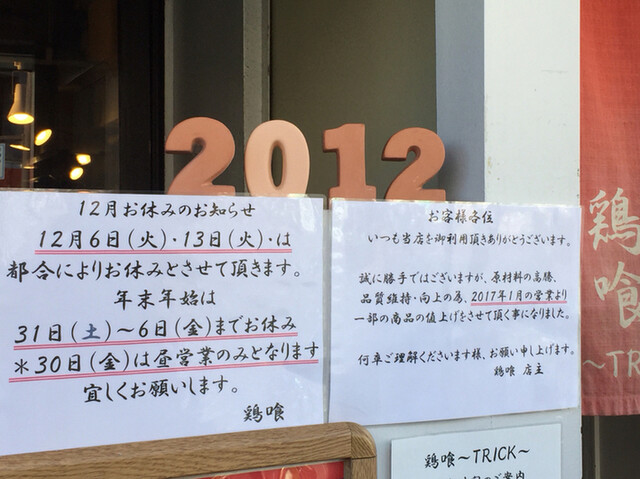 2012
12月お休みのお知らせ
12月6日(火)・13日(火)・は
都合によりお休みとさせて頂きます。
年末年始は
31日(土)～6日(金)までお休み
＊30日(金)は昼営業のみとなります
宜しくお願いします。
鶏喰
お客様各位
いつも当店を御利用頂きありがとうございます。
誠に勝手ではございますが、原材料の高騰、
品質維持・向上の為、2017年1月の営業より
一部の商品の値上げをさせて頂く事になりました。
何卒ご理解くださいます様、お願い申し上げます。
鶏喰 店主
鶏喰～TRICK～
のご案内
鶏喰
～TR